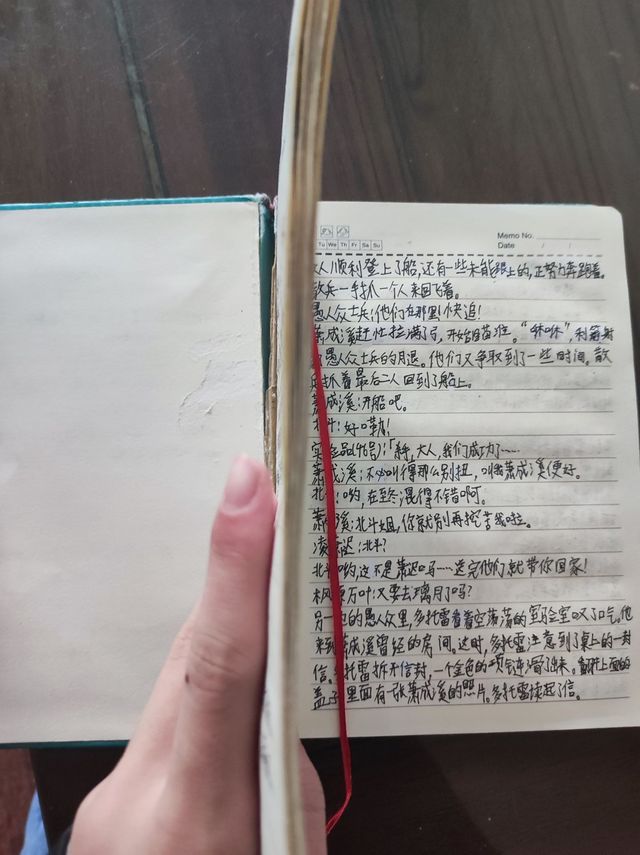 Memo No.
Tu We Th Fr Sa Su
Date / /
人顺利登上了船,还有一些未能跟上的,正努力奔跑着。
散兵一手抓一个人来回飞着。
愚人众士兵:他们在那里!快追!
萧成溪赶忙拉满了弓,开始瞄准。“咻咻”,利箭射
愚人众士兵的月退。他们又争取到了一些时间。散
兵抓着最后二人回到了船上。
萧成溪:开船吧。
北斗:好嘞!
实验品(代号):「大人,我们成功了……
萧成溪:不必叫得那么别扭,叫我萧成溪便好。
北斗:哟,在至冬混得不错啊。
萧成溪:北斗姐,你就别再挖苦我啦。
凌萧迟:北斗?
北斗:哟,这不是萧迟吗……送完他们就带你回家!
枫原万叶:又要去璃月了吗?
另一边的愚人众里,多托雷看着空荡荡的实验室叹了口气。他
来到萧成溪曾经的房间。这时,多托雷注意到了桌上的一封
信。多托雷拆开信封,一个金色的项链滑了出来。翻开上面的
盖子,里面有一张萧成溪的照片。多托雷读起了信。